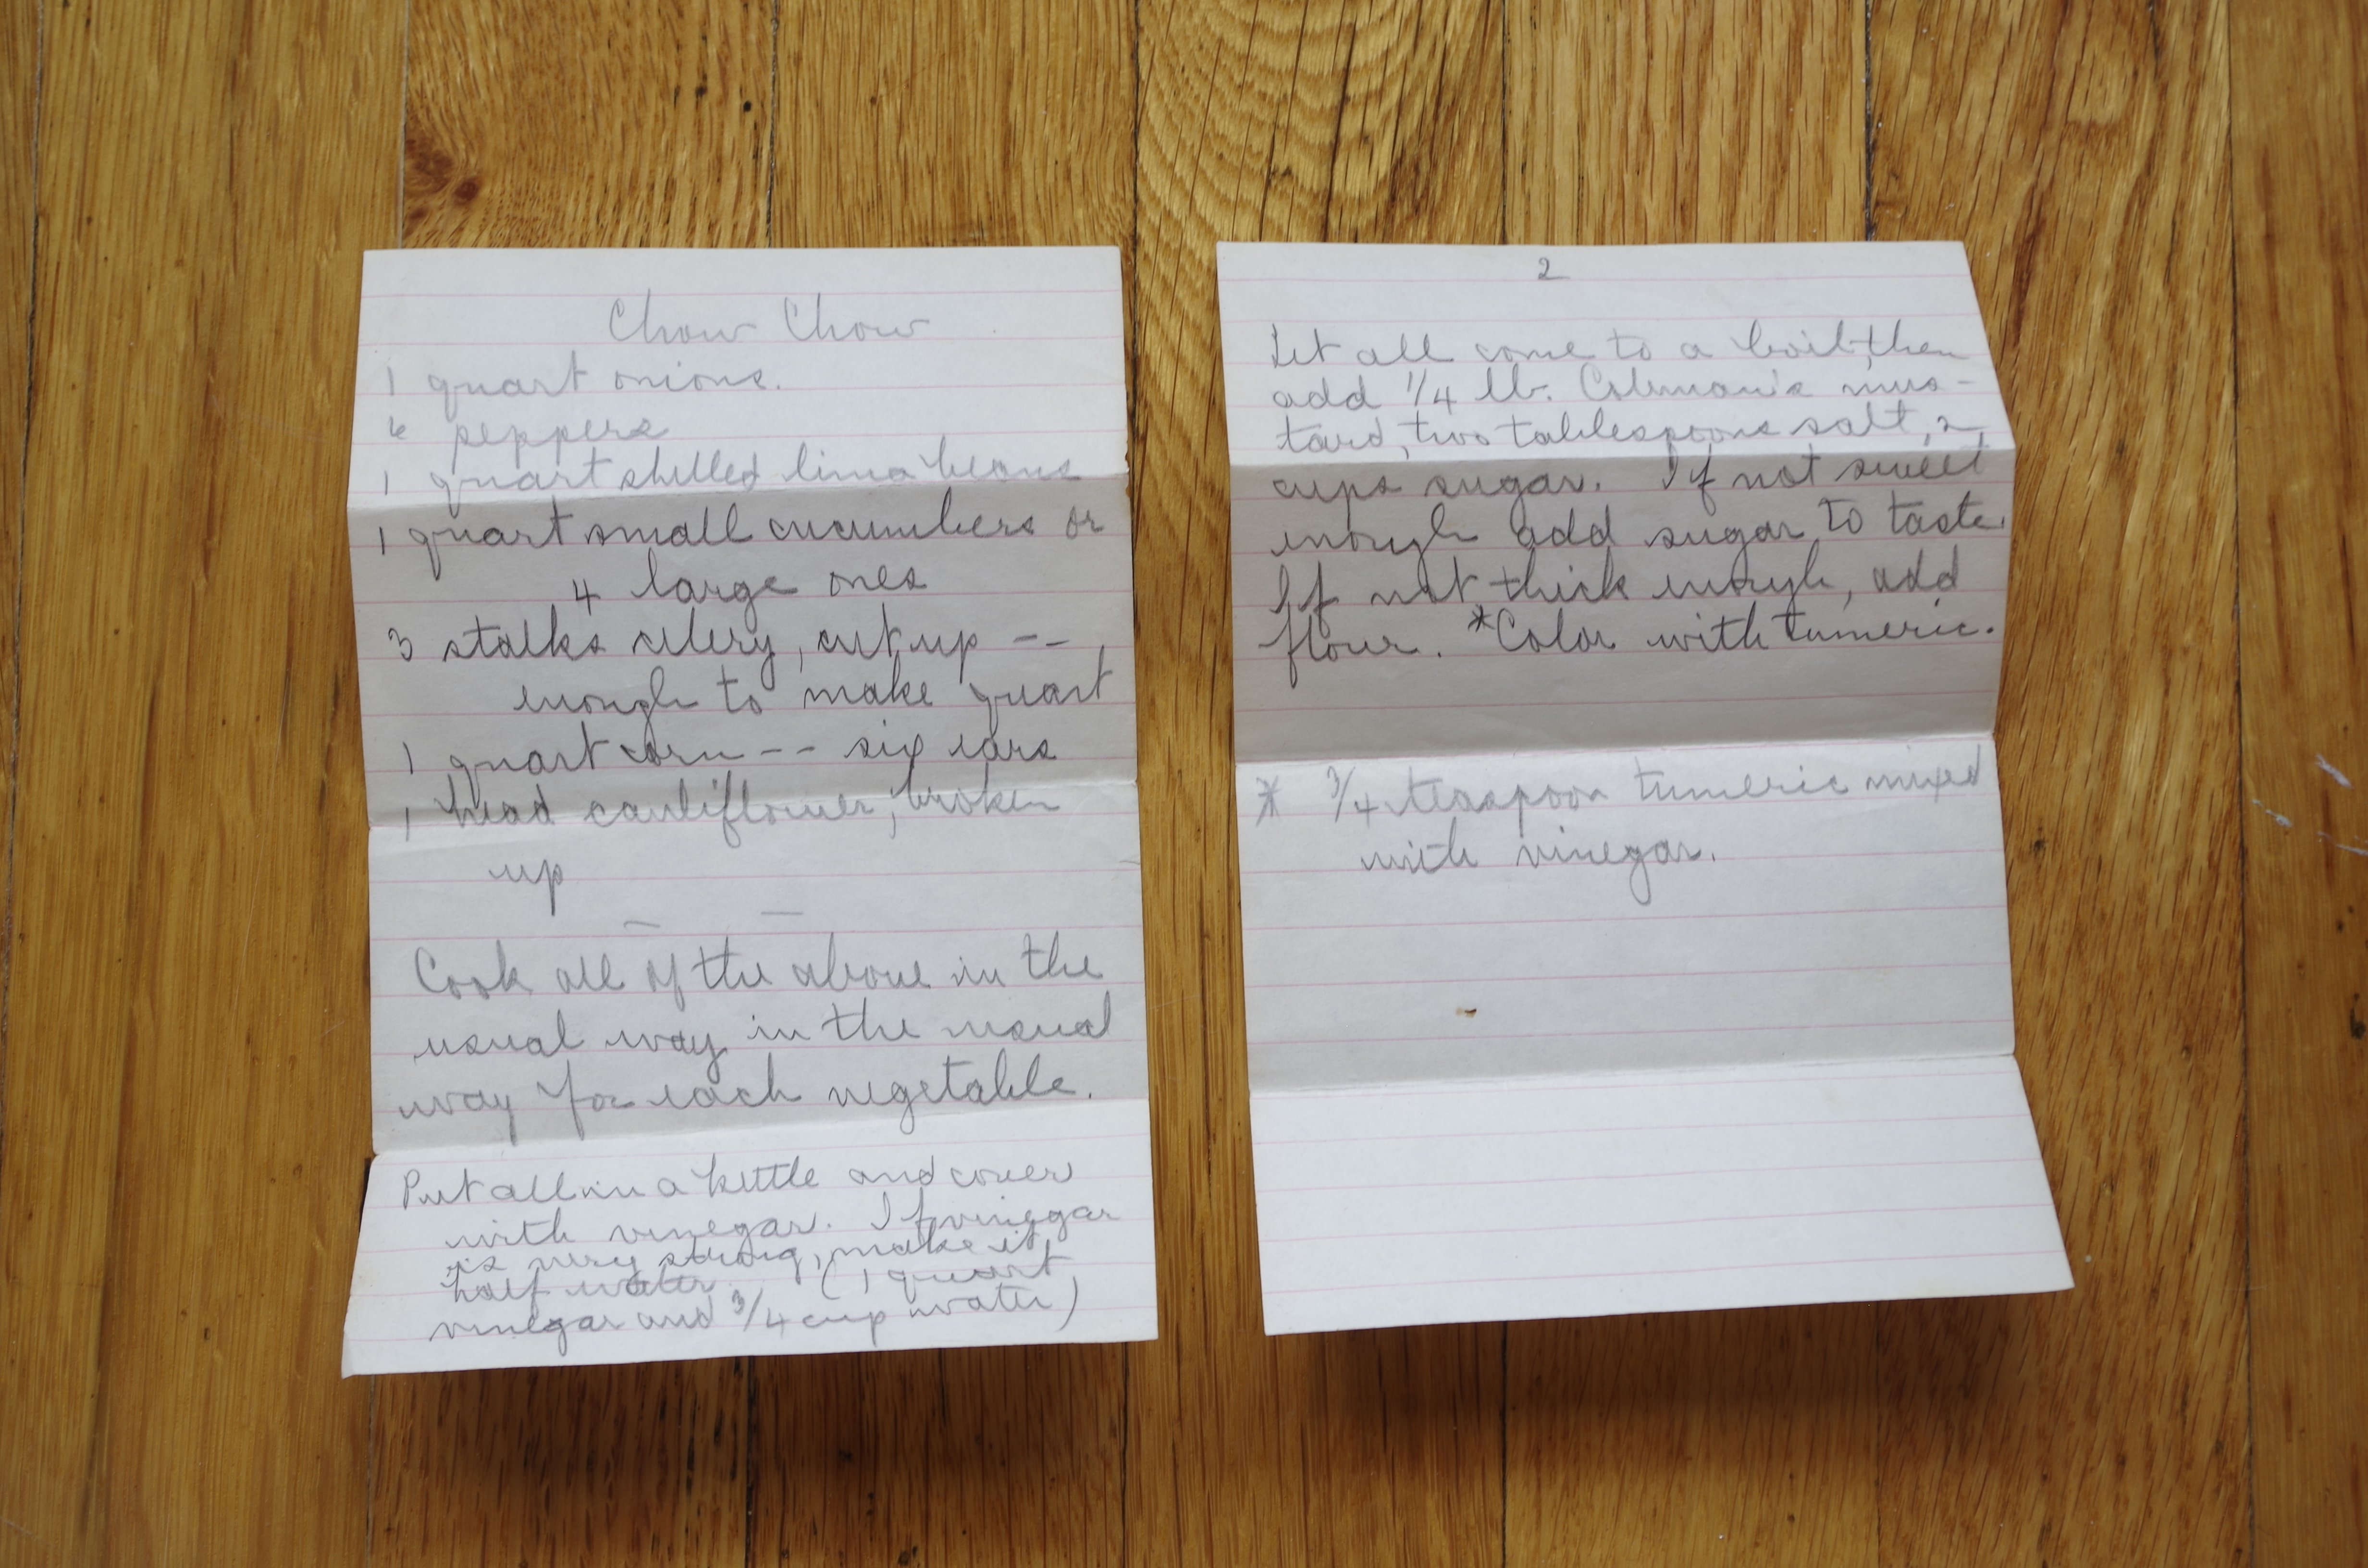 Chow Chow
1 quart onions.
6 peppers
1 quart shelled lima beans
1 quart small cucumbers or
4 large ones
3 stalks celery, cut up --
enough to make quart
1 quart corn -- six ears
1 head cauliflower, broken
up
Cook all of the above in the
usual way in the usual
way for each vegetable.
Put all in a kettle and cover
with vinegar. If vinegar
is very strong, make it
half water. (1 quart
vinegar and 3/4 cup water)
2
Let all come to a boil, then
add 1/4 lb. Coleman's mus-
tard, two tablespoons salt, 2
cups sugar. If not sweet
enough add sugar to taste.
If not thick enough, add
flour. *Color with tumeric.
* 3/4 teaspoon tumeric mixed
with vinegar.